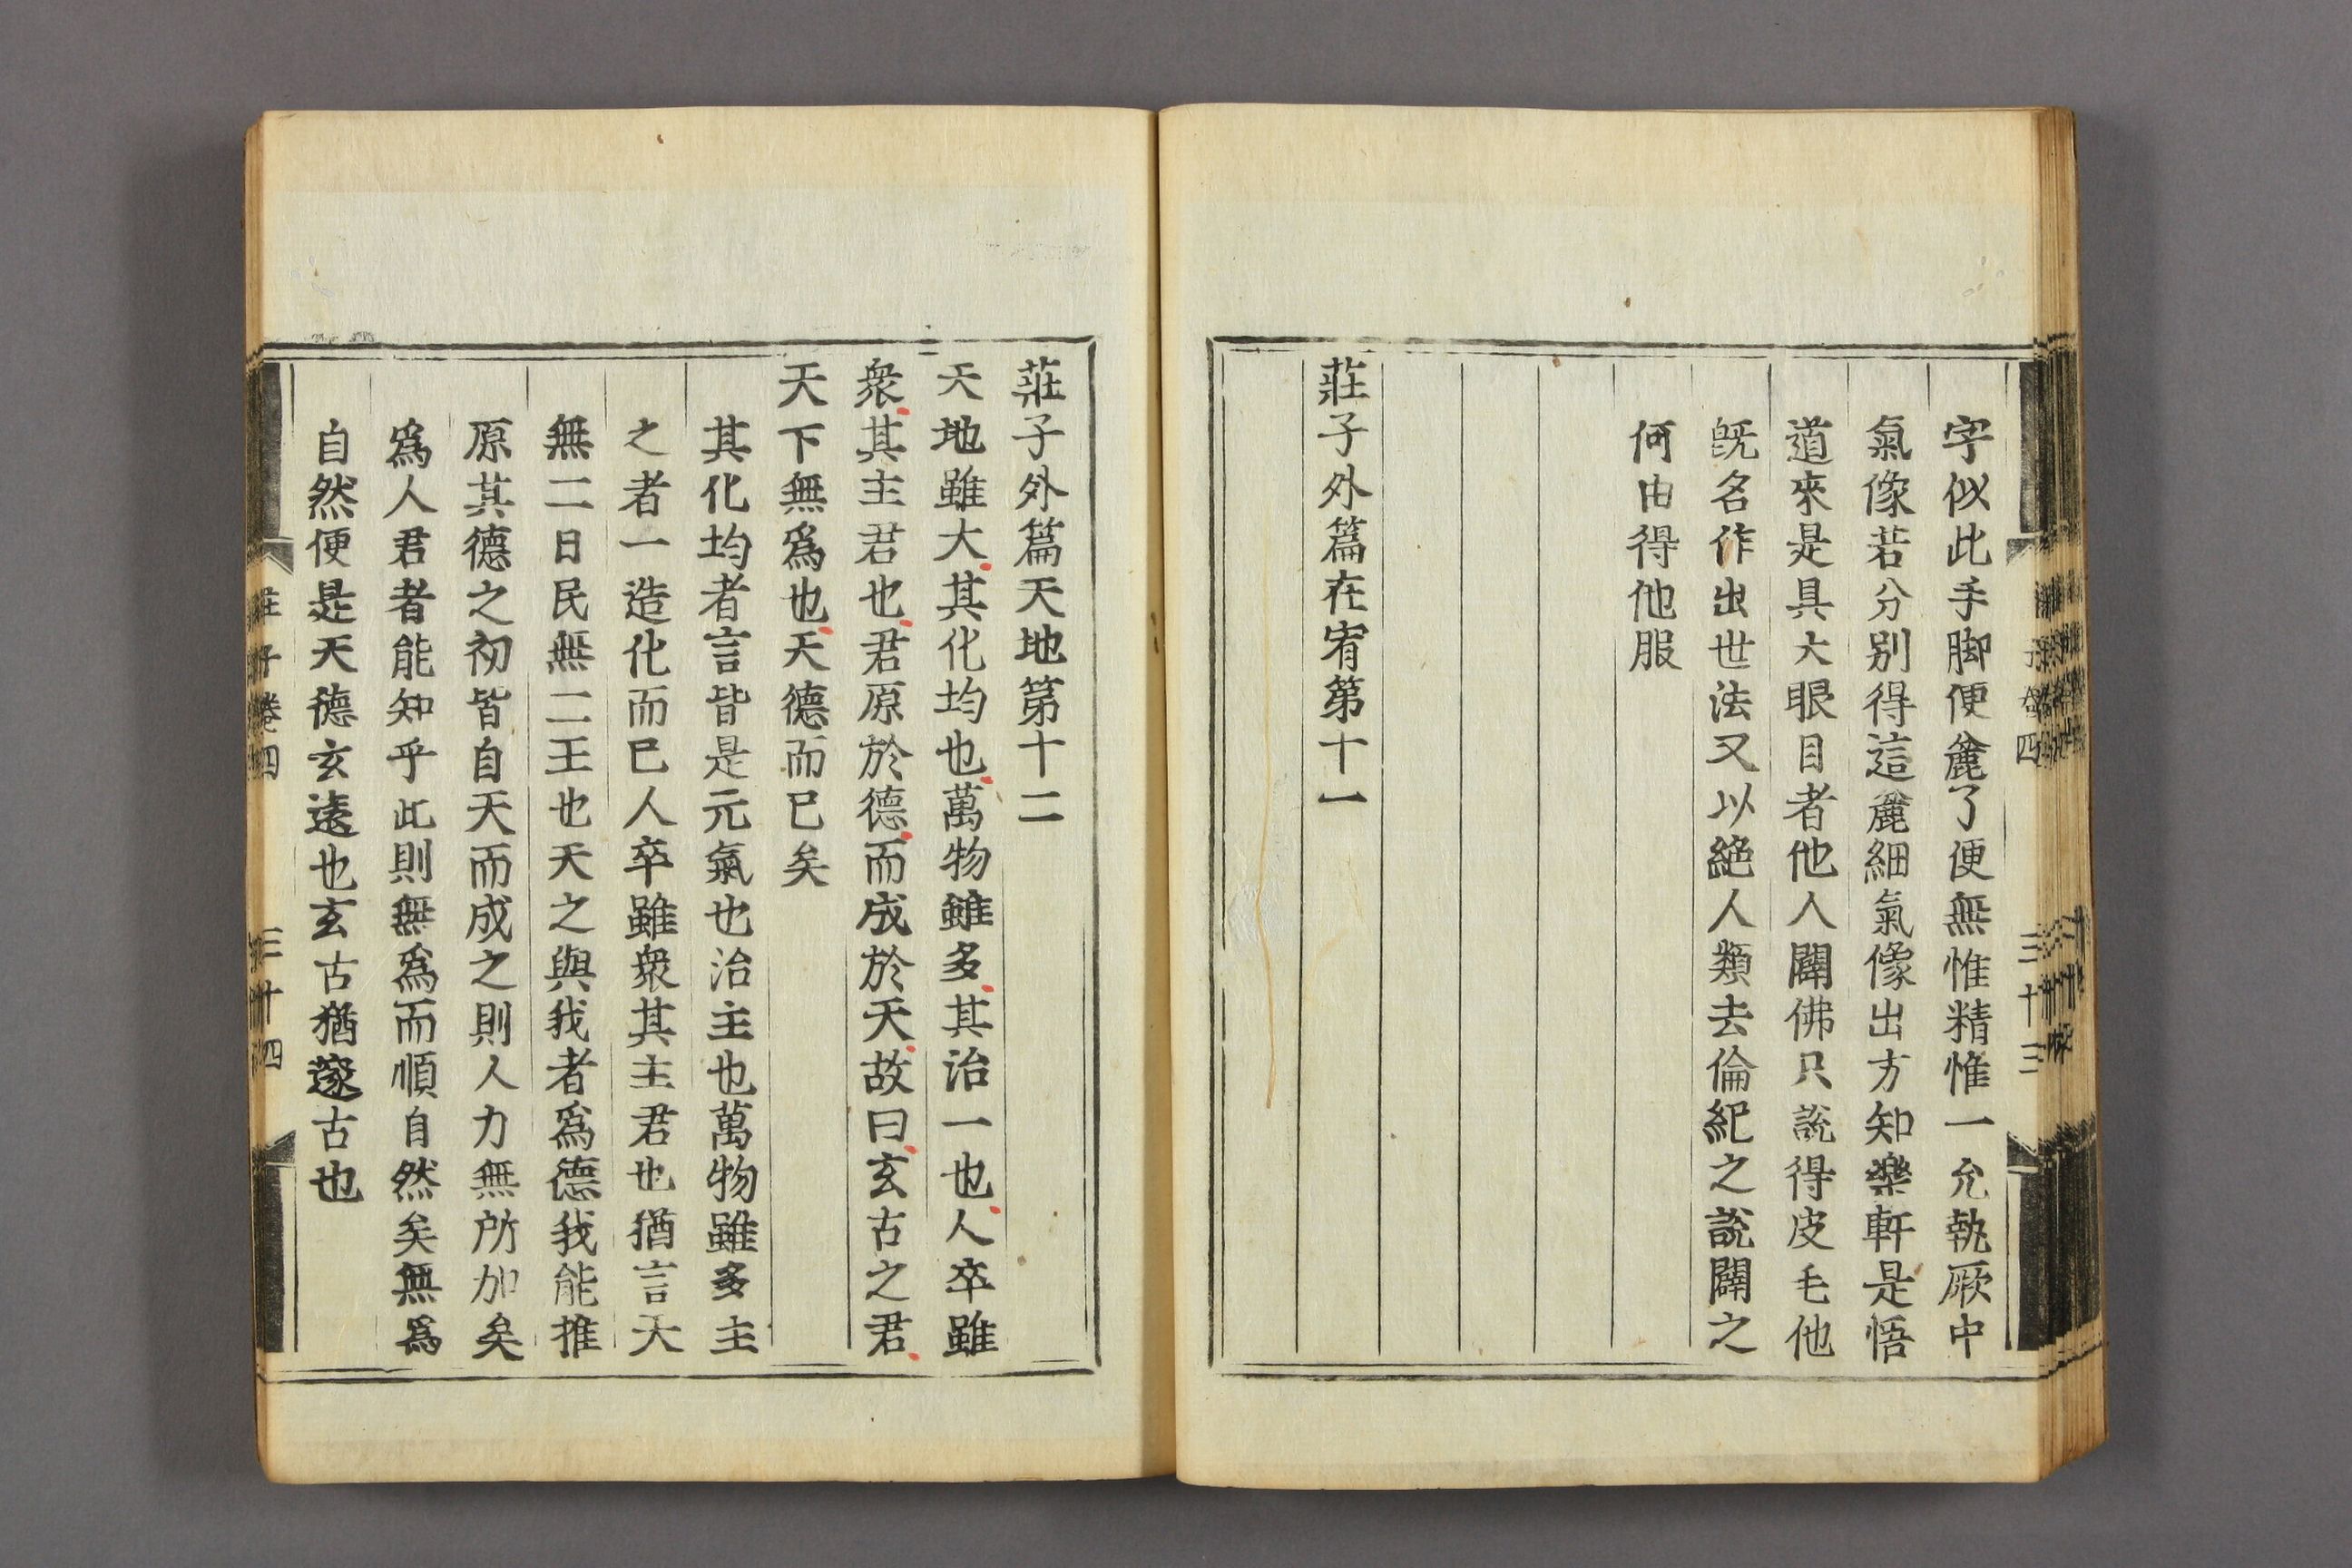 字似此手脚便麄了便無惟精惟一允執厥中
氣像若分别得這麄細氣像出方知樂軒是悟
道來是具大眼目者他人闢佛只説得皮毛他
既名作出世法又以絶人類去倫紀之説闢之
何由得他服
莊子外篇在宥第十一
莊子外篇天地第十二
天地雖大其化均也萬物雖多其治一也人卒雖
衆其主君也君原於德而成於天故曰玄古之君
天下無爲也天德而已矣
其化均者言皆是元氣也治主也萬物雖多主
之者一造化而已人卒雖衆其主君也猶言天
無二日民無二王也天之與我者爲德我能推
原其德之初皆自天而成之則人力無所加矣
爲人君者能知乎此則無爲而順自然矣無爲
自然便是天德玄遠也玄古猶邃古也
莊子卷四
三十四